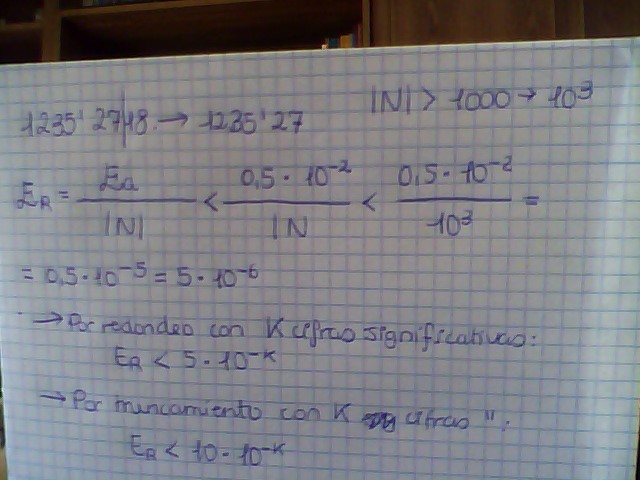 1235'27|18. → 1235'27 |N| > 1000 → 10³
E_R = Ea / |N| < 0,5 · 10⁻² / |N < 0,5 · 10⁻² / 10³ =
= 0,5 · 10⁻⁵ = 5 · 10⁻⁶
→ Por redondeo con K cifras significativas:
E_R < 5 · 10⁻ᴷ
→ Por truncamiento con K cifras ":
E_R < 10 · 10⁻ᴷ